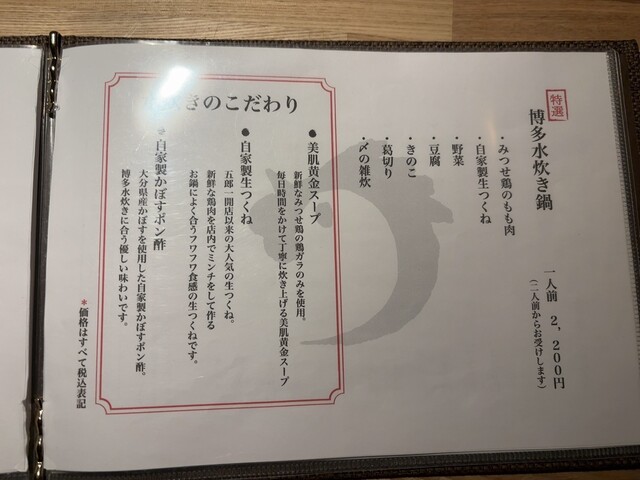 特選
博多水炊き鍋
一人前 2,200円
(二人前からお受けします)
・みつせ鶏のもも肉
・自家製生つくね
・野菜
・豆腐
・きのこ
・葛切り
・〆の雑炊
きのこだわり
●美肌黄金スープ
新鮮なみつせ鶏の鶏ガラのみを使用。
毎日時間をかけて丁寧に炊き上げる美肌黄金スープ
●自家製生つくね
五郎一開店以来の大人気の生つくね。
新鮮な鶏肉を店内でミンチをして作る
お鍋によく合うフワフワ食感の生つくねです。
●自家製かぼすポン酢
大分県産かぼすを使用した自家製かぼすポン酢。
博多水炊きに合う優しい味わいです。
*価格はすべて税込表記